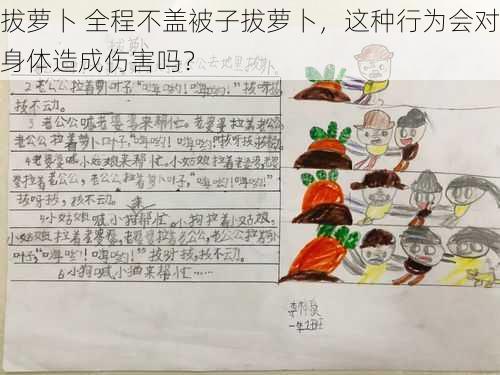 拔萝卜 全程不盖被子拔萝卜，这种行为会对
身体造成伤害吗？
拔萝卜
公去地里拔
2老公公拉着萝卜叶子，“嗨哟！嗨哟！”拔呀拔
拔不动。
3 老公公喊老婆婆来帮忙。老婆婆拉着老公公，
老公公拉着萝卜叶子，“嗨哟！嗨哟！”拔呀拔，拔不动
4老婆婆喊小姑娘来帮忙。小姑娘拉着老婆婆，老婆
婆拉着老公公，老公公拉着萝卜叶子，“嗨哟！嗨哟！”
拔呀拔，拔不动。
5小姑娘喊小狗帮忙，小狗拉着小姑娘，
小姑娘拉着老婆婆，老婆婆拉着老公公，老公公拉着萝卜
叶子，“嗨哟！嗨哟！”拔呀拔，拔不动。
6小狗喊小猫来帮忙……
李
一年2班